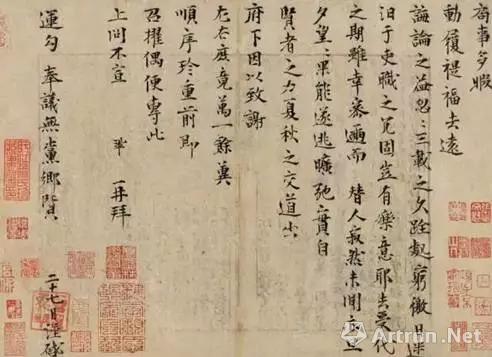 局事多暇
動履禔福去遠
誨論之益忽〻三載之久跧處窮徼日迷
汩于吏職之冗固豈有樂意耶去受代
之期雖幸密邇而替人寂然未聞亦旦
夕望〻果能遂逃曠弛實自
賢者之力夏秋之交道出
府下因以致謝
左右庶竟萬一餘冀
順序珍重前即
召擢偶便專此
上問不宣 鞏 再拜
運勾 奉議無黨鄉賢
二十七日謹啓
Artron.Net